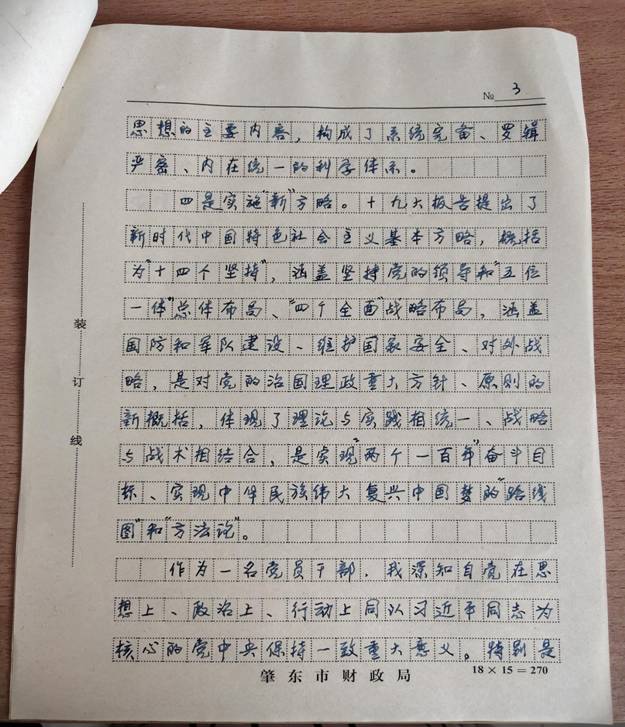 № 3
思想的主要内容，构成了系统完备、逻辑
严密、内在统一的科学体系。
四是实施“新”方略。十九大报告提出了
新时代中国特色社会主义基本方略，概括
为“十四个坚持”，涵盖坚持党的领导和“五位
一体”总体布局、“四个全面”战略布局，涵盖
国防和军队建设、维护国家安全、对外战
略，是对党的治国理政重大方针、原则的
新概括，体现了理论与实践相统一、战略
与战术相结合，是实现“两个一百年”奋斗目
标、实现中华民族伟大复兴中国梦的“路线
图”和“方法论”。
作为一名党员干部，我深知自觉在思
想上、政治上、行动上同以习近平同志为
核心的党中央保持一致重大意义。特别是
装
订
线
肇东市财政局 18×15=270